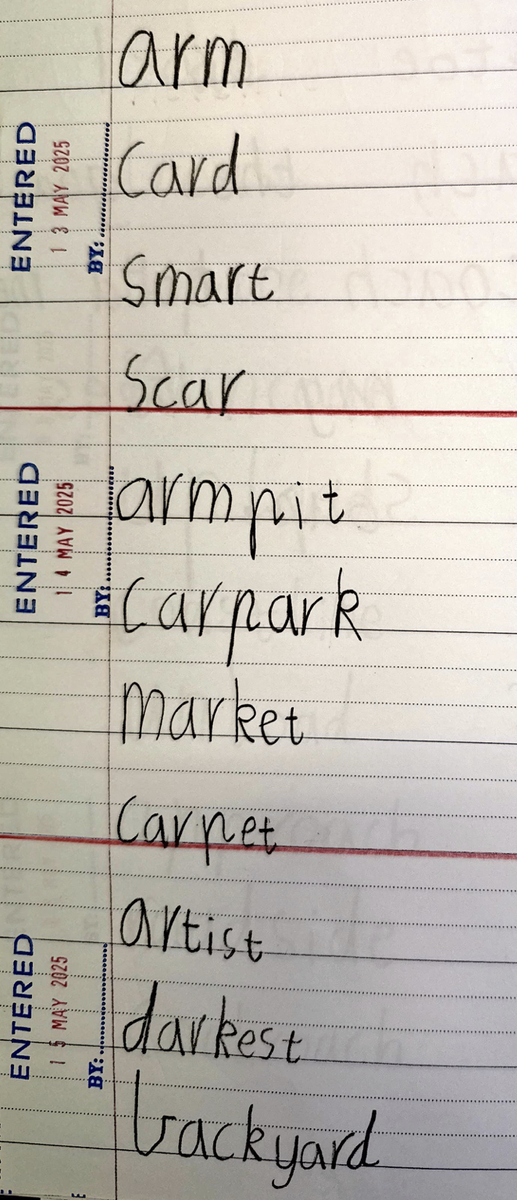 arm
ENTERED
13 MAY 2025
BY:
Card
Smart
Scar
ENTERED
14 MAY 2025
BY:
armpit
Carpark
market
Carpet
ENTERED
15 MAY 2025
BY:
artist
darkest
backyard